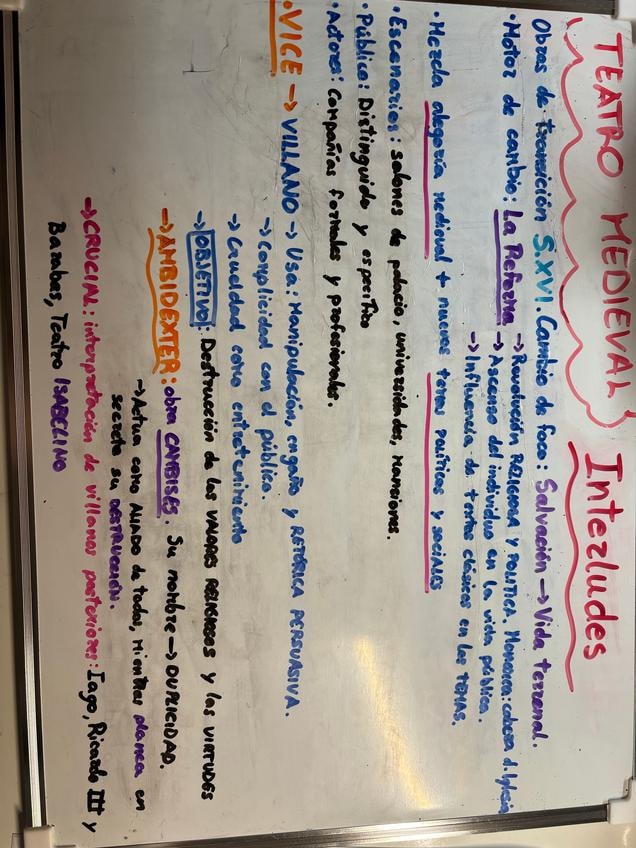 TEATRO MEDIEVAL Interludes
Obras de transición S.XVI. Cambio de foco: Salvación → Vida terrenal.
• Motor de cambio: La Reforma → Revolución RELIGIOSA Y POLITICA. Monarca: cabeza d. Iglesia
→ Ascenso del individuo en la vida pública.
→ Influencia de textos clásicos en los TEMAS.
• Mezcla alegoría medieval + nuevos temas políticos y sociales
• Escenarios: salones de palacio, universidades, mansiones.
• Público: Distinguido y específico
• Actores: Compañías formales y profesionales.
• VICE → VILLANO → Usa: Manipulación, engaño y RETÓRICA PERSUASIVA.
→ Complicidad con el público.
→ Crueldad como entretenimiento
→ OBJETIVO: Destrucción de los VALORES RELIGIOSOS y las VIRTUDES
→ AMBIDEXTER: obra CAMBISES. Su nombre → DUPLICIDAD.
→ Actua como ALIADO de todos, mientras planea en
secreto su DESTRUCCIÓN.
→ CRUCIAL: interpretación de villanos posteriores: Iago, Ricardo III y
Barabas, Teatro ISABELINO